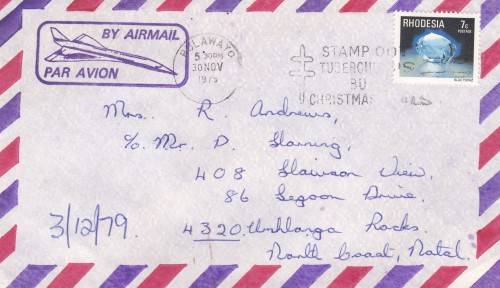 BY AIRMAIL
PAR AVION
BULAWAYO
5 30PM
30 NOV
1979
STAMP OUT
TUBERCULOSIS
BUY
CHRISTMAS SEALS
RHODESIA 7c
POSTAGE
BLUE TOPAZ
Mrs. R. Andrews,
c/o Mr. D.
408 View,
86 Lagoon Drive,
4320 Umhlanga Rocks.
North Coast, Natal.
3/12/79.